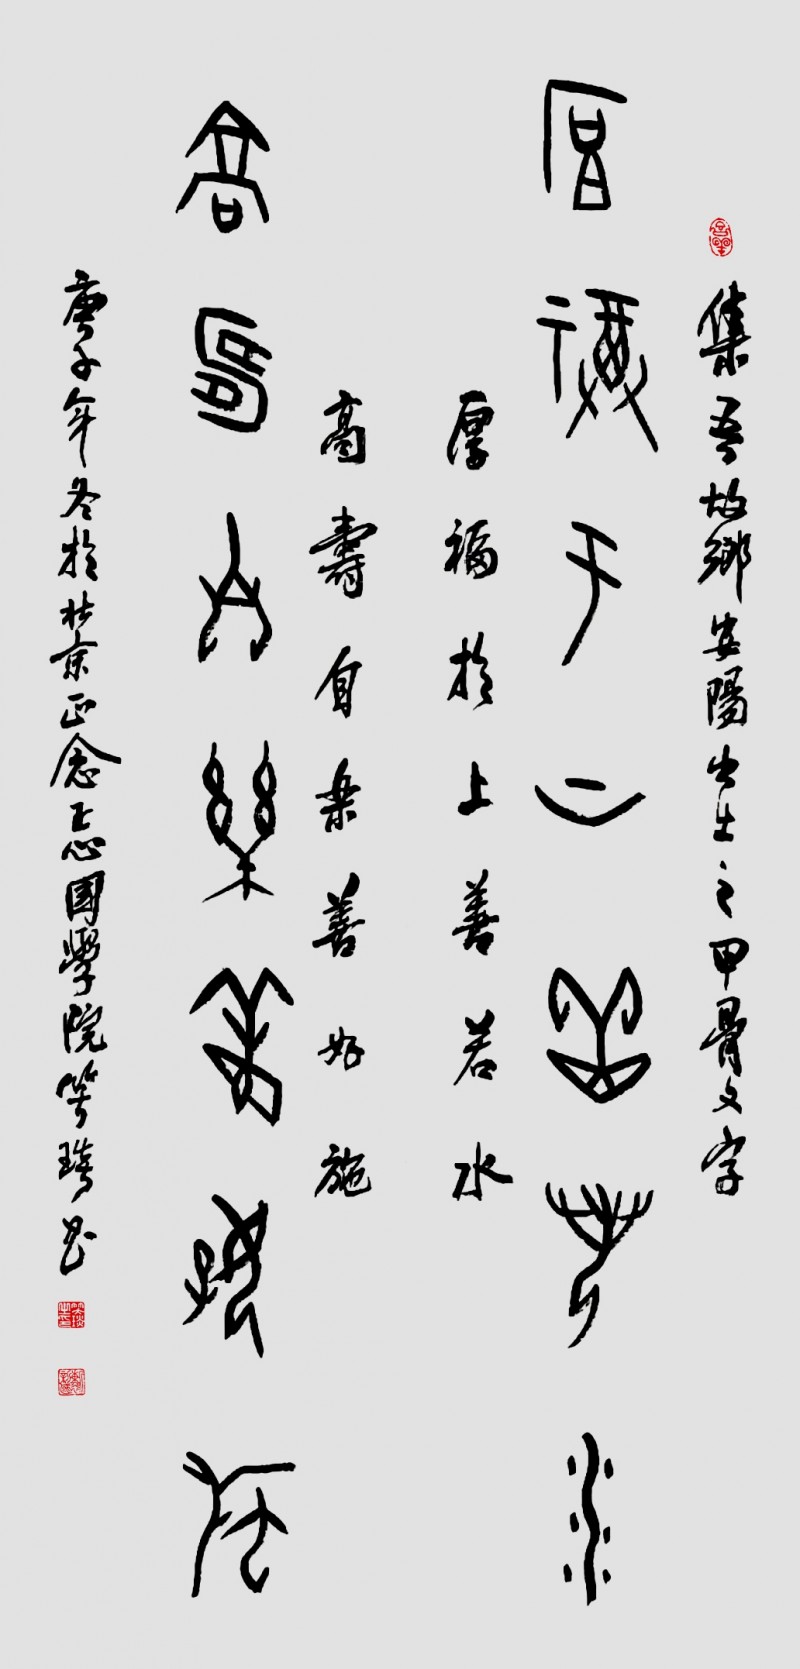 集吾故鄉安陽出土之甲骨文字
厚福于上善若水
厚福於上善若水
高壽自樂善好施
高壽自樂善好施
庚子年冬於北京正念正心國學院書